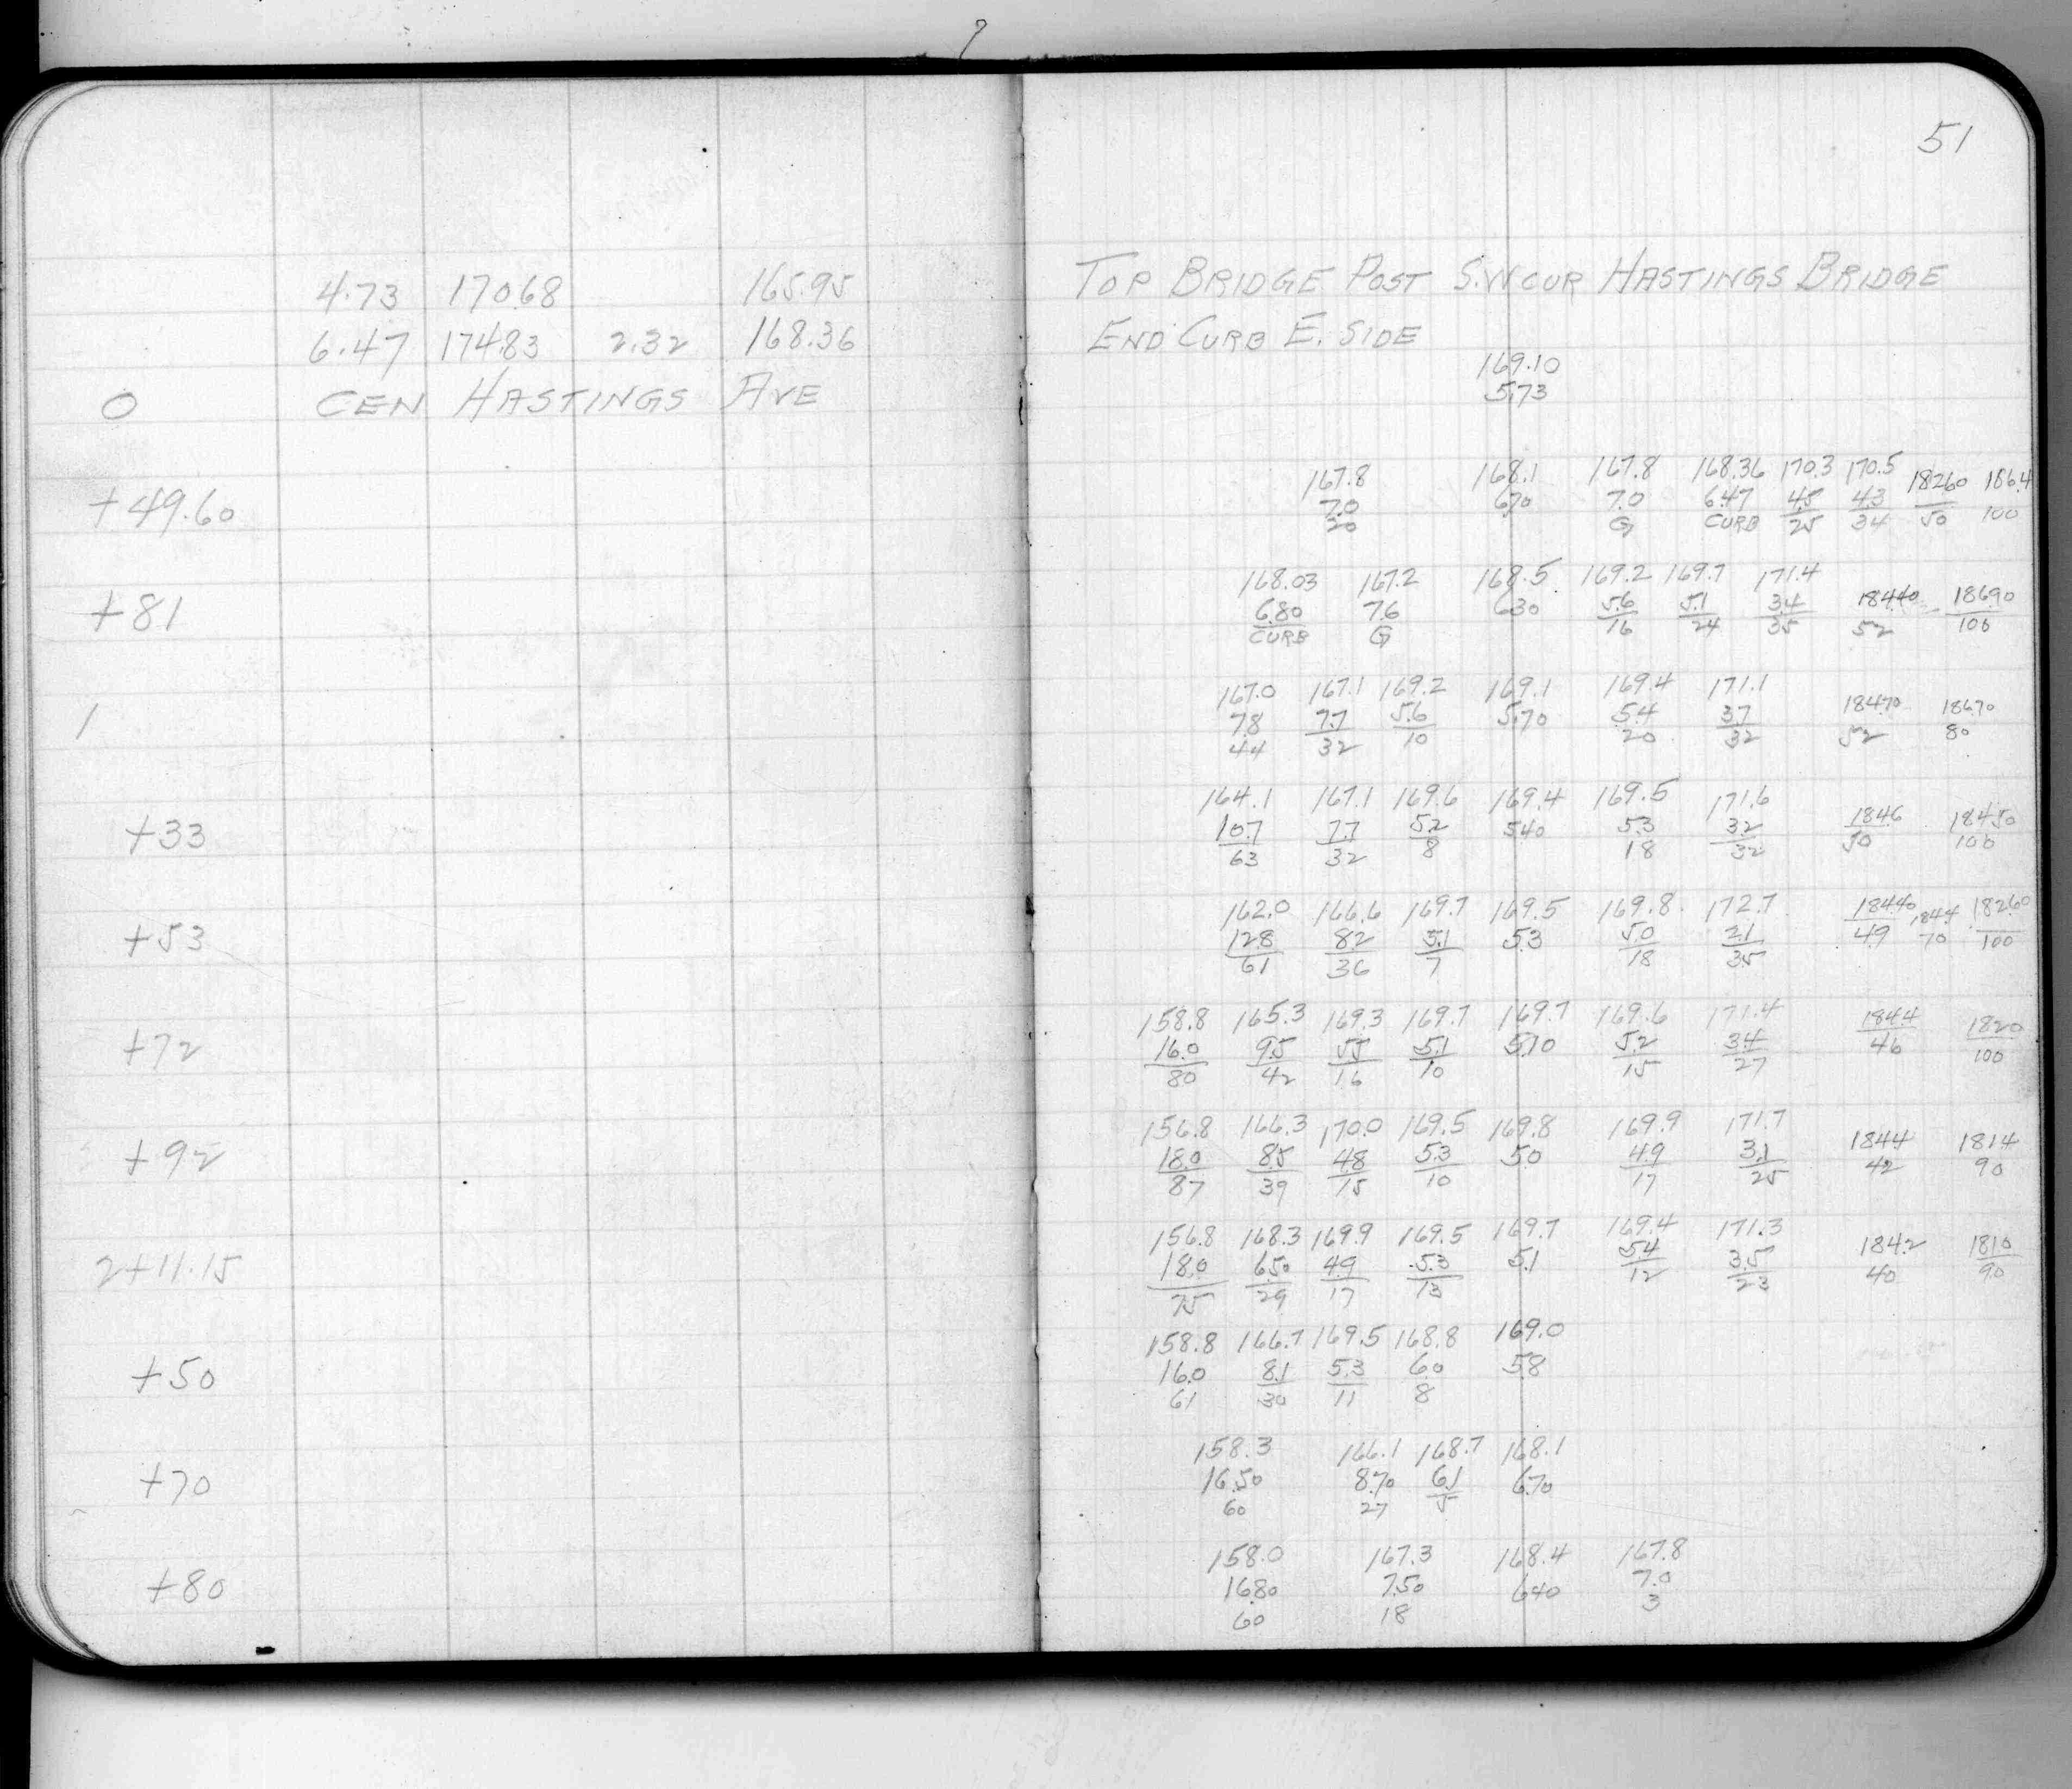 51
4.73 170.68 165.95 TOP BRIDGE POST S.W COR HASTINGS BRIDGE
6.47 174.83 2.32 168.36 END CURB E. SIDE
169.10
0 CEN HASTINGS AVE 5.73
167.8 168.1 167.8 168.36 170.3 170.5 182.60 186.4
+49.60 7.0 6.70 7.0 6.47 4.5 4.3
20 G CURB 25 34 50 100
168.03 167.2 168.5 169.2 169.7 171.4 184.40 186.90
+81 6.80 7.6 6.30 5.6 5.1 3.4
CURB G 16 24 35 52 100
167.0 167.1 169.2 169.1 169.4 171.1 184.70 186.70
1 7.8 7.7 5.6 5.70 5.4 3.7
44 32 10 20 32 52 80
164.1 167.1 169.6 169.4 169.5 171.6 184.6 184.50
+33 10.7 7.7 5.2 5.40 5.3 3.2
63 32 8 18 32 50 100
162.0 166.6 169.7 169.5 169.8 172.7 184.40 184.4 182.60
+53 12.8 8.2 5.1 5.3 5.0 2.1
61 36 7 18 35 49 70 100
158.8 165.3 169.3 169.7 169.7 169.6 171.4 184.4 182.0
+72 16.0 9.5 5.5 5.1 5.10 5.2 3.4
80 42 16 10 15 27 46 100
156.8 166.3 170.0 169.5 169.8 169.9 171.7 184.4 181.4
+92 18.0 8.5 4.8 5.3 5.0 4.9 3.1
87 39 15 10 17 25 42 90
156.8 168.3 169.9 169.5 169.7 169.4 171.3 184.2 181.0
2+11.15 18.0 6.50 4.9 5.3 5.1 5.4 3.5
75 29 17 13 12 23 40 90
158.8 166.7 169.5 168.8 169.0
+50 16.0 8.1 5.3 6.0 5.8
61 30 11 8
158.3 166.1 168.7 168.1
+70 16.50 8.70 6.1 6.70
60 27 5
158.0 167.3 168.4 167.8
+80 16.80 7.50 6.40 7.0
60 18 3